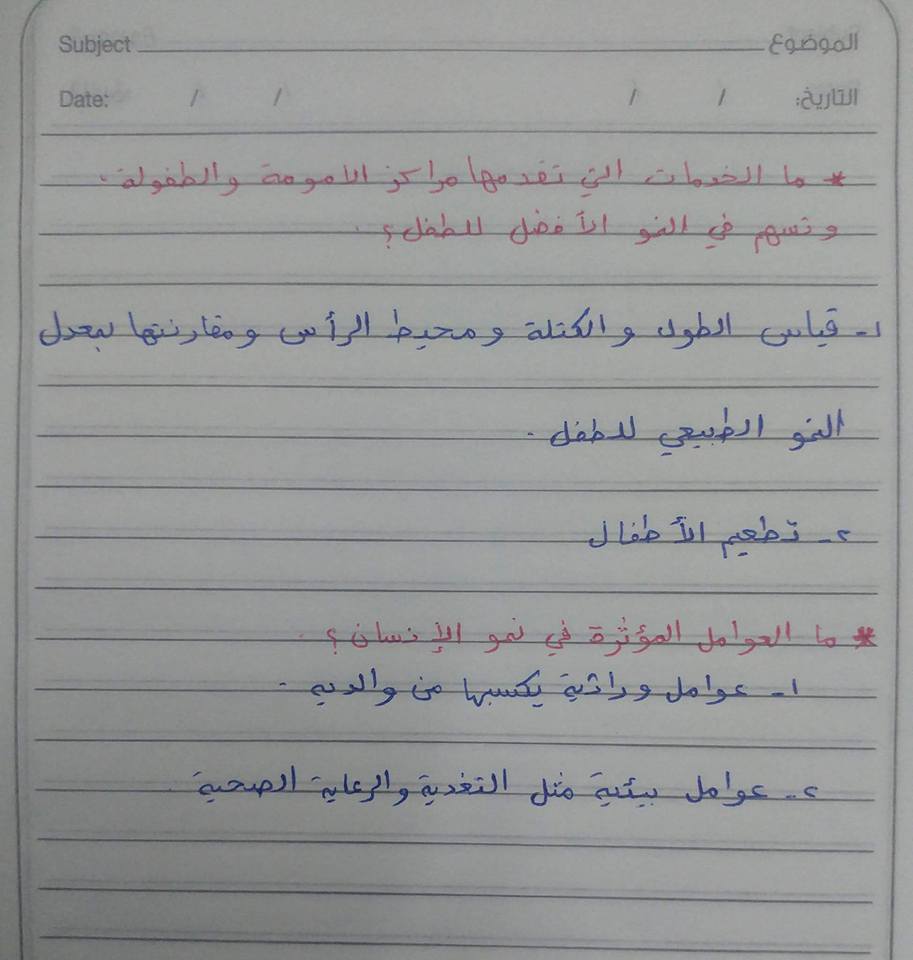 Subject الموضوع
Date: / / / / التاريخ:
* ما الخدمات التي تقدمها مراكز الأمومة والطفولة.
وتسهم في النمو الأفضل للطفل؟
١- قياس الطول والكتلة ومحيط الرأس ومقارنتها بمعدل
النمو الطبيعي للطفل.
٢- تطعيم الأطفال
* ما العوامل المؤثرة في نمو الإنسان؟
١- عوامل وراثية يكسبها من والديه.
٢- عوامل بيئية مثل التغذية والرعاية الصحية